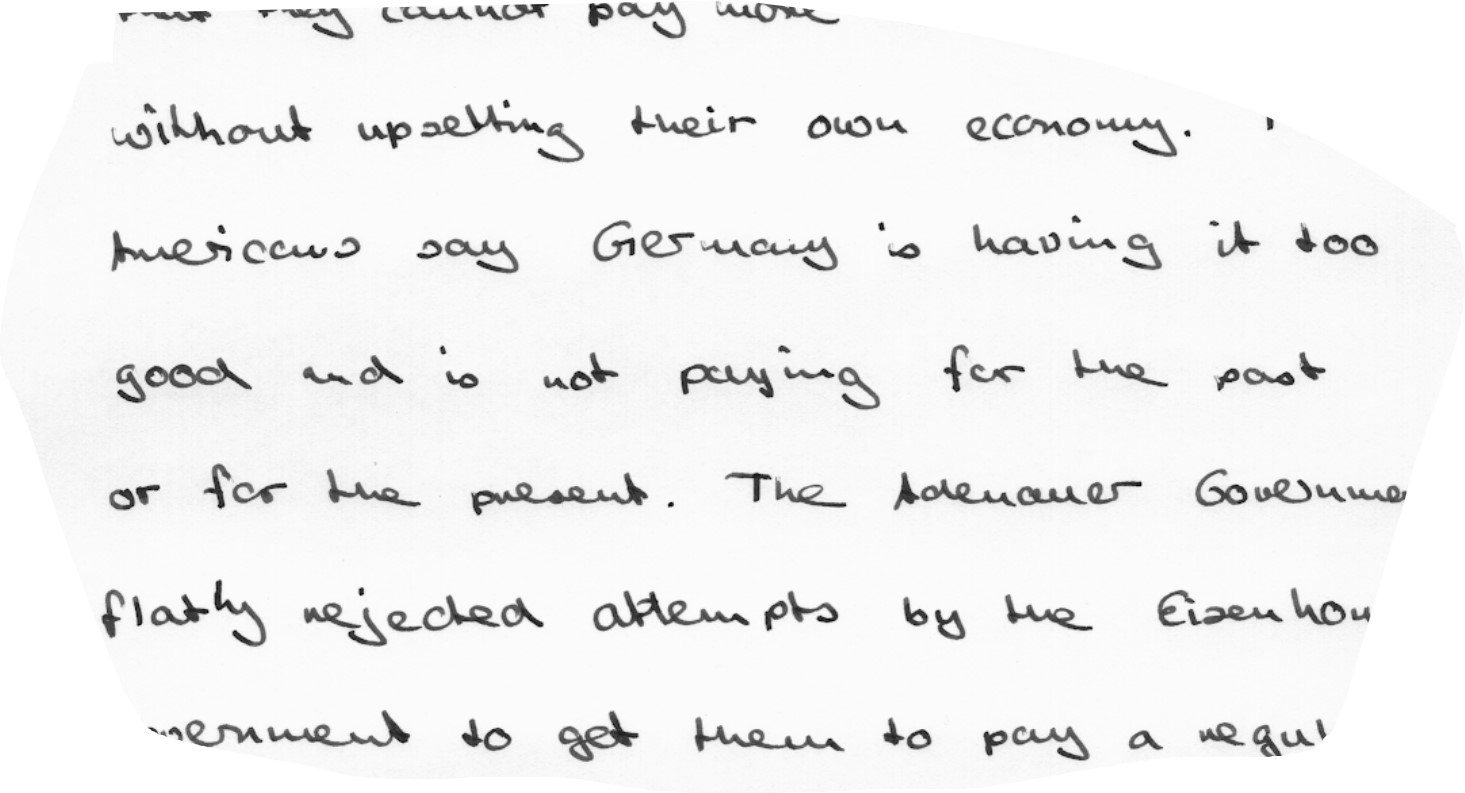 they cannot pay more
without upsetting their own economy.
Americans say Germany is having it too
good and is not paying for the past
or for the present. The Adenauer
flatly rejected attempts by the
to get them to pay a